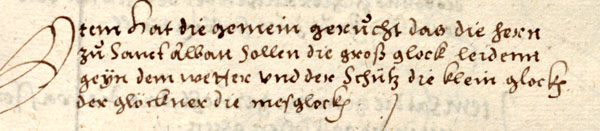 Item hat die gemein gerücht das die hern
zů Sanct Alban sollen die groß glock leidenn
geyn dem wetter vnd der Schütz die klein glock
der glöckner die mesglock